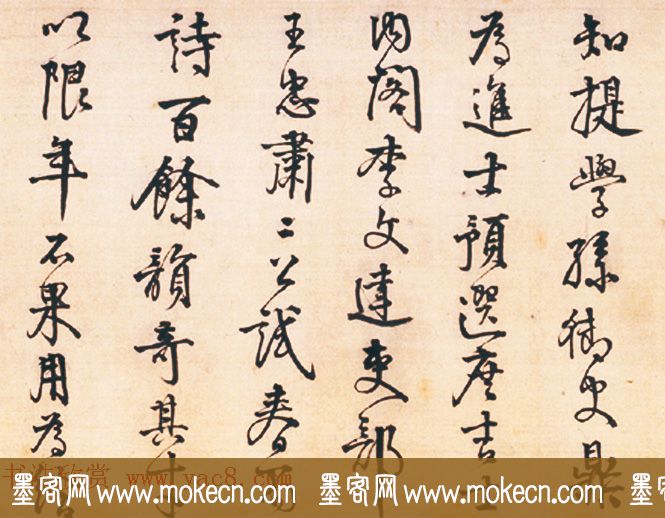 知提學孫御史鼎
為進士預選庶吉士
內閣李文達吏部
王忠肅二公試春雪
詩百餘韻奇其才
以限年不果用為
书法欣赏 www.yac8.com
墨客网 www.mokecn.com 墨客网 www.mokecn.com